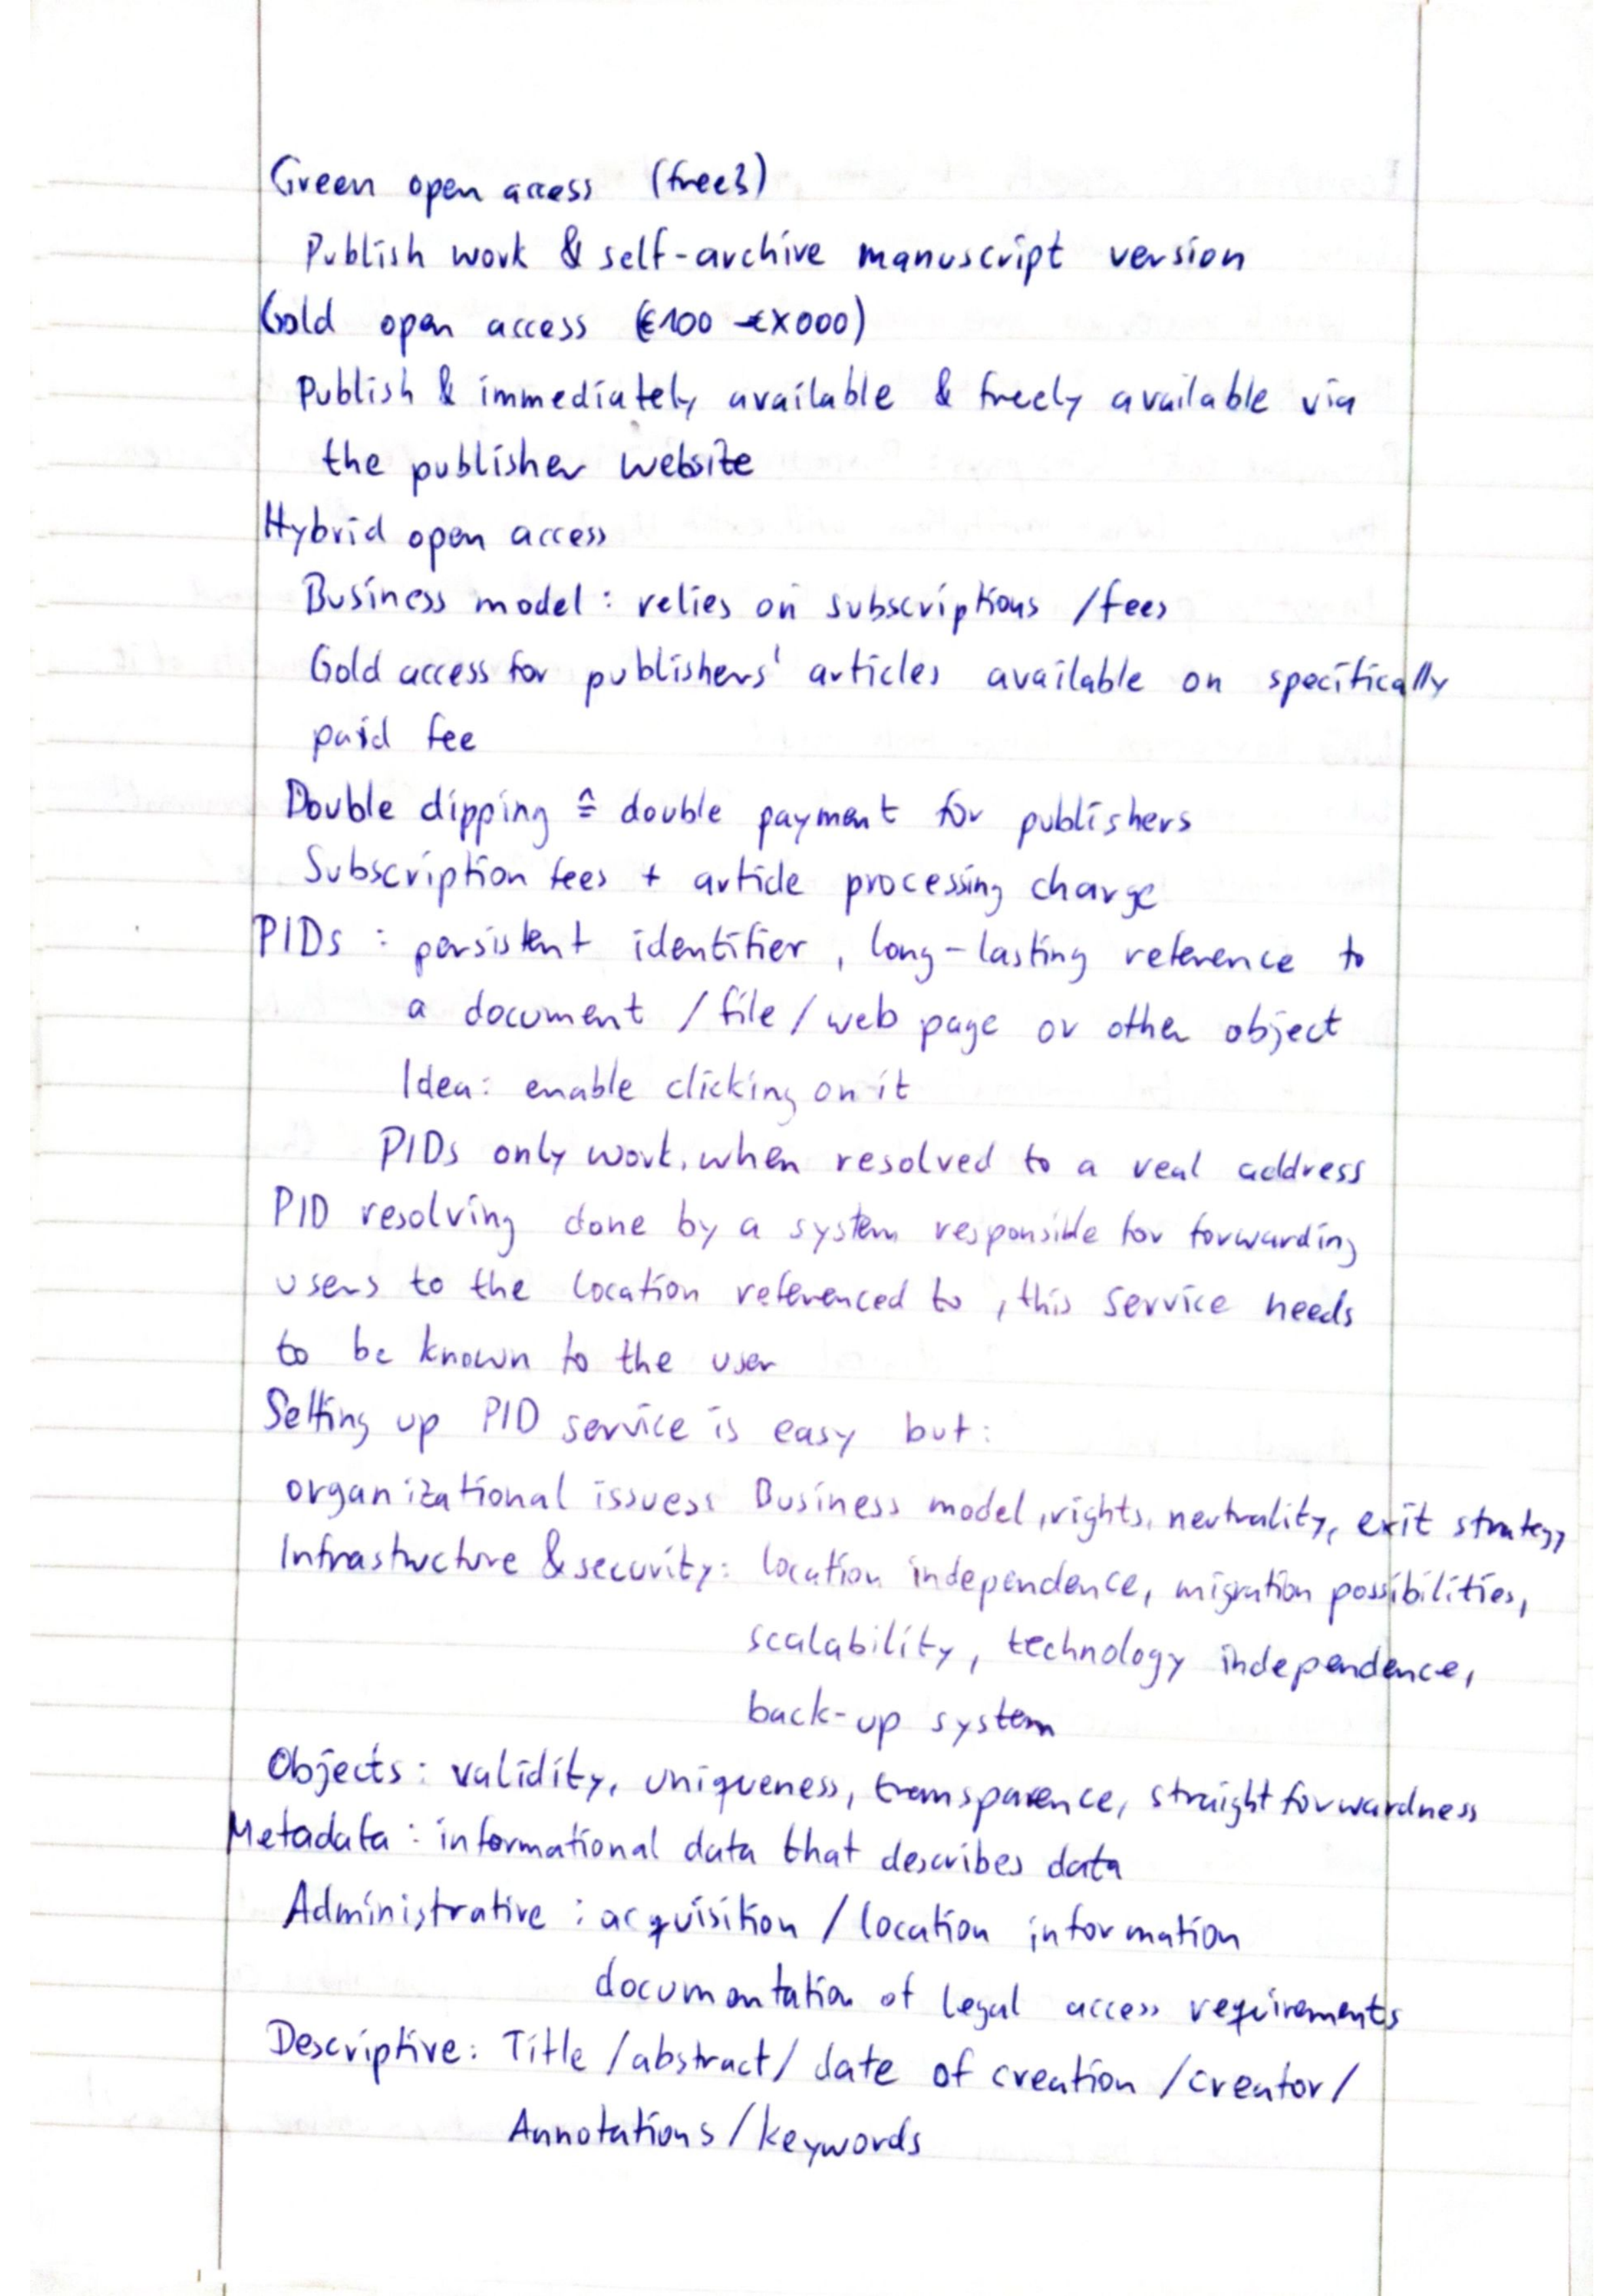 Green open access (free?)
Publish work & self-archive manuscript version
Gold open access (€100 - €X000)
Publish & immediately available & freely available via
the publisher website
Hybrid open access
Business model: relies on subscriptions / fees
Gold access for publishers' articles available on specifically
paid fee
Double dipping ≙ double payment for publishers
Subscription fees + article processing charge
PIDs : persistent identifier, long-lasting reference to
a document / file / web page or other object
Idea: enable clicking on it
PIDs only work, when resolved to a real address
PID resolving done by a system responsible for forwarding
users to the location referenced to, this service needs
to be known to the user
Setting up PID service is easy but:
organizational issues: Business model, rights, neutrality, exit strategy
Infrastructure & security: location independence, migration possibilities,
scalability, technology independence,
back-up system
Objects: validity, uniqueness, transparence, straightforwardness
Metadata: informational data that describes data
Administrative: acquisition / location information
documentation of legal access requirements
Descriptive: Title / abstract / date of creation / creator /
Annotations / keywords